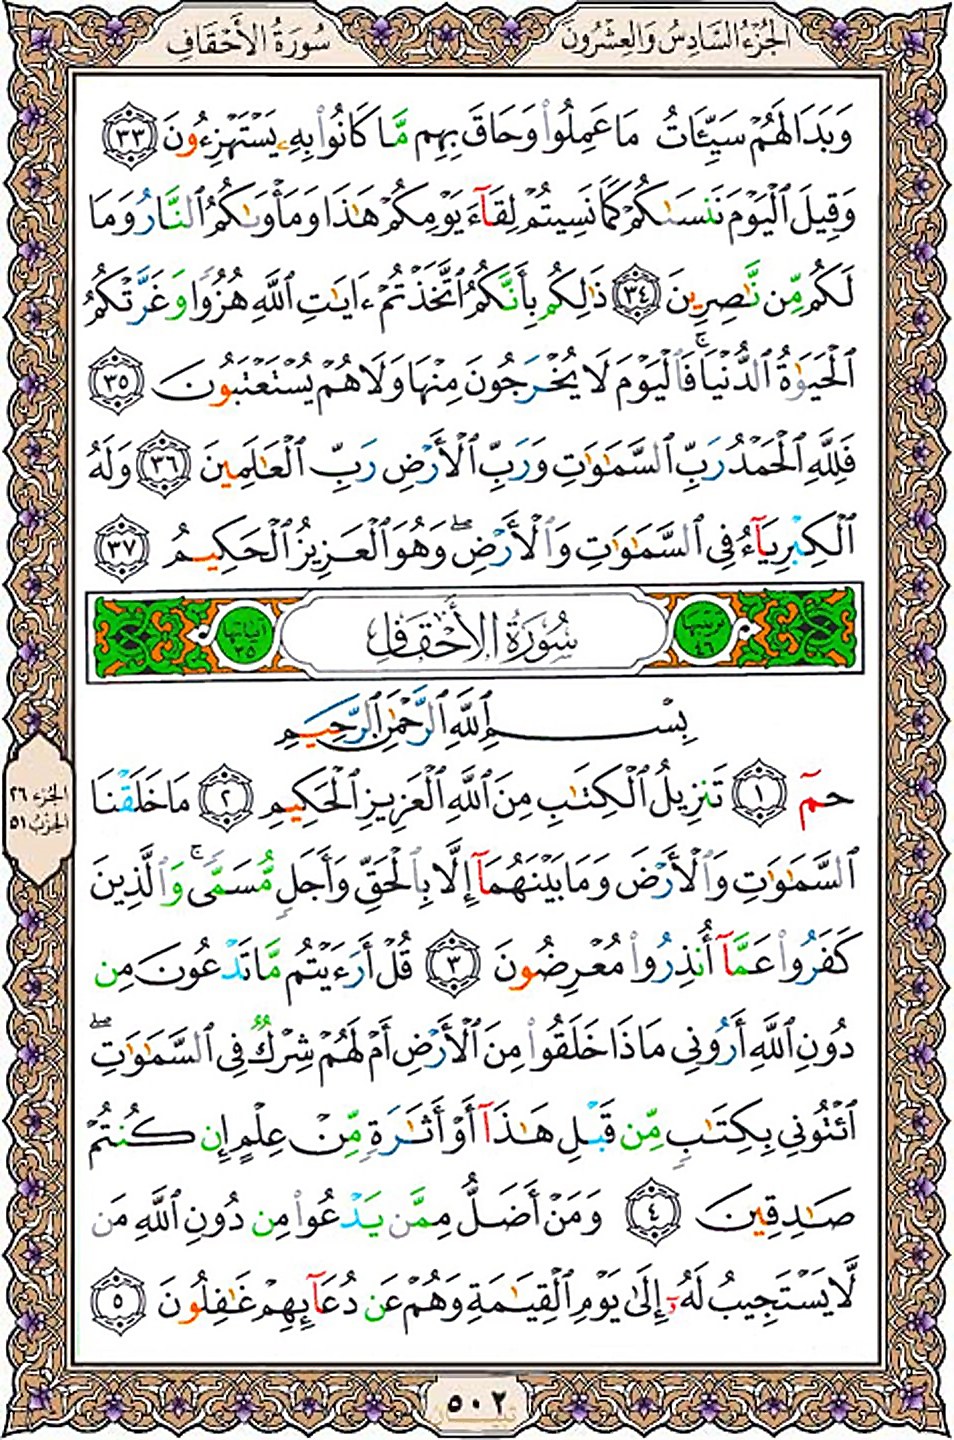 الجزء السادس والعشرون
سورة الأحقاف
وَبَدَا لَهُمْ سَيِّـَٔاتُ مَا عَمِلُوا۟ وَحَاقَ بِهِم مَّا كَانُوا۟ بِهِۦ يَسْتَهْزِءُونَ ٣٣
وَقِيلَ ٱلْيَوْمَ نَنسَىٰكُمْ كَمَا نَسِيتُمْ لِقَآءَ يَوْمِكُمْ هَـٰذَا وَمَأْوَىٰكُمُ ٱلنَّارُ وَمَا
لَكُم مِّن نَّـٰصِرِينَ ٣٤ ذَٰلِكُم بِأَنَّكُمُ ٱتَّخَذْتُمْ ءَايَـٰتِ ٱللَّهِ هُزُوًا وَغَرَّتْكُمُ
ٱلْحَيَوٰةُ ٱلدُّنْيَا ۚ فَٱلْيَوْمَ لَا يُخْرَجُونَ مِنْهَا وَلَا هُمْ يُسْتَعْتَبُونَ ٣٥
فَلِلَّهِ ٱلْحَمْدُ رَبِّ ٱلسَّمَـٰوَٰتِ وَرَبِّ ٱلْأَرْضِ رَبِّ ٱلْعَـٰلَمِينَ ٣٦ وَلَهُ
ٱلْكِبْرِيَآءُ فِى ٱلسَّمَـٰوَٰتِ وَٱلْأَرْضِ ۖ وَهُوَ ٱلْعَزِيزُ ٱلْحَكِيمُ ٣٧
ترتيبها ٤٦ سُورَةُ الأَحْقَافِ آياتها ٣٥
بِسْمِ ٱللَّهِ ٱلرَّحْمَـٰنِ ٱلرَّحِيمِ
حمٓ ١ تَنزِيلُ ٱلْكِتَـٰبِ مِنَ ٱللَّهِ ٱلْعَزِيزِ ٱلْحَكِيمِ ٢ مَا خَلَقْنَا
ٱلسَّمَـٰوَٰتِ وَٱلْأَرْضَ وَمَا بَيْنَهُمَآ إِلَّا بِٱلْحَقِّ وَأَجَلٍ مُّسَمًّى ۚ وَٱلَّذِينَ
كَفَرُوا۟ عَمَّآ أُنذِرُوا۟ مُعْرِضُونَ ٣ قُلْ أَرَءَيْتُم مَّا تَدْعُونَ مِن
دُونِ ٱللَّهِ أَرُونِى مَاذَا خَلَقُوا۟ مِنَ ٱلْأَرْضِ أَمْ لَهُمْ شِرْكٌ فِى ٱلسَّمَـٰوَٰتِ ۖ
ٱئْتُونِى بِكِتَـٰبٍ مِّن قَبْلِ هَـٰذَآ أَوْ أَثَـٰرَةٍ مِّنْ عِلْمٍ إِن كُنتُمْ
صَـٰدِقِينَ ٤ وَمَنْ أَضَلُّ مِمَّن يَدْعُوا۟ مِن دُونِ ٱللَّهِ مَن
لَّا يَسْتَجِيبُ لَهُۥٓ إِلَىٰ يَوْمِ ٱلْقِيَـٰمَةِ وَهُمْ عَن دُعَآئِهِمْ غَـٰفِلُونَ ٥
الجزء ٢٦
الحزب ٥١
٥٠٢